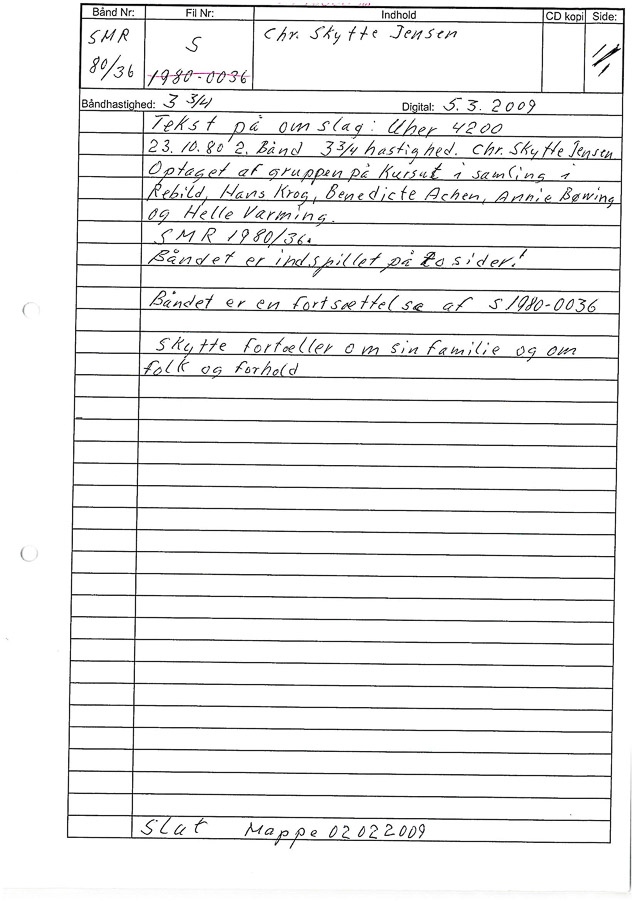 Bånd Nr: Fil Nr: Indhold CD kopi Side:
SMR S Chr. Skytte Jensen
80/36 1980-0036
Båndhastighed: 3 3/4 Digital: 5.3.2009
Tekst på omslag: Uher 4200
23.10.80 2. Bånd 3 3/4 hastighed. Chr. Skytte Jensen
Optaget af gruppen på Kursut i samling i
Rebild, Hans Krog, Benedicte Achen, Annie Bøwing
og Helle Varming.
SMR 1980/36.
Båndet er indspillet på to sider!
Båndet er en fortsættelse af S1980-0036
Skytte fortæller om sin familie og om
folk og forhold
Slut Mappe 02022009